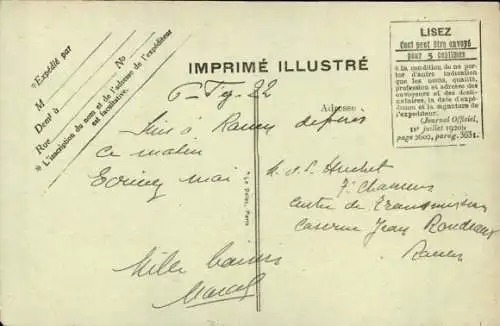 *Expédié par
M
Demt à
Rue
No
* L'inscription du nom et de l'adresse de l'expéditeur
est facultative.
IMPRIMÉ ILLUSTRÉ
Adresse
LISEZ
Ceci peut être envoyé
pour 5 centimes
à la condition de ne por-
ter d'autre indication
que les noms, qualité,
profession et adresse des
envoyeurs et des desti-
nataires, la date d'expé-
dition et la signature de
l'expéditeur.
(Journal Officiel,
1er juillet 1920)
page 3602, parag. 3631.
22
Suis à Rouen depuis
ce matin
Ecrivez moi
Mille baisers
Marcel
Centre de Transmission
Caserne Jean Rondeaux
Rouen